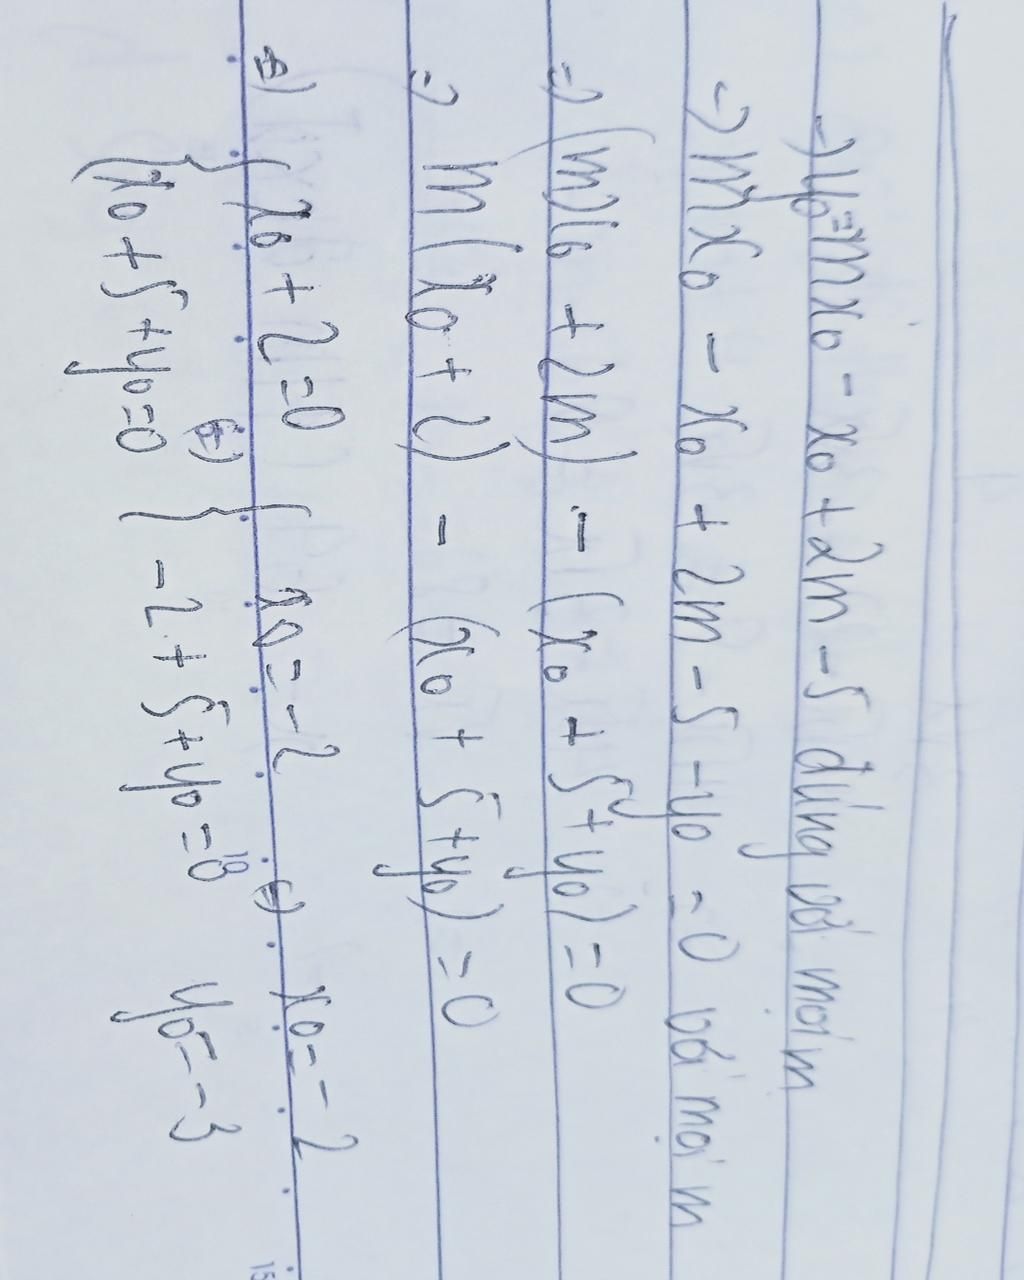 -> y₀ = mx₀ - x₀ + 2m - 5 đúng với mọi m
-> mx₀ - x₀ + 2m - 5 - y₀ = 0 với mọi m
=> (mx₀ + 2m) - (x₀ + 5 + y₀) = 0
=> m(x₀ + 2) - (x₀ + 5 + y₀) = 0
{ x₀ + 2 = 0 { x₀ = -2 x₀ = -2
{ x₀ + 5 + y₀ = 0 { -2 + 5 + y₀ = 0 y₀ = -3